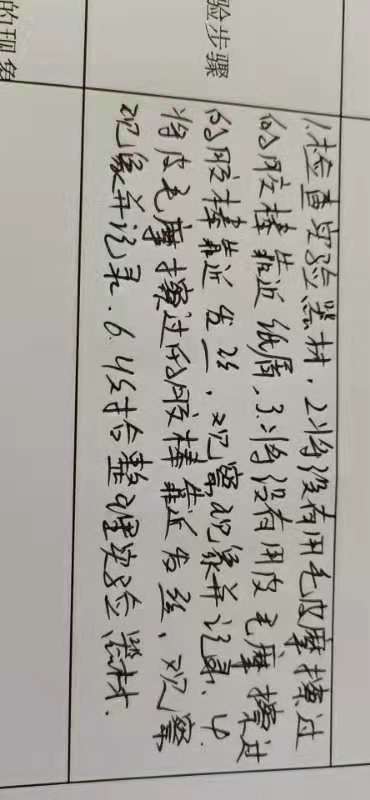 验步骤
的现象
1.检查实验器材.2.将没有用毛皮摩擦过
的胶棒靠近纸屑.3.将没有用皮毛摩擦过
的胶棒靠近发丝,观察现象并记录.4.
将皮毛摩擦过的胶棒靠近发丝,观察
现象并记录.6.收拾整理实验器材.